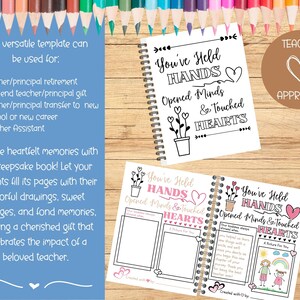 versatile template can
be used for:
her/principal retirement
end teacher/principal gift
her/principal transfer to new
ol or new career
her Assistant
e heartfelt memories with
keepsake book! Let your
ts fill its pages with their
orful drawings, sweet
ages, and fond memories,
ing a cherished gift that
brates the impact of a
beloved teacher.
You've Held
HANDS
Opened Minds
& Touched
HEARTS
TEAC
APPRO
You've Held
HANDS
Opened Minds
& Touched
HEARTS
You've Held
HANDS
Opened Minds & Touched
HEARTS